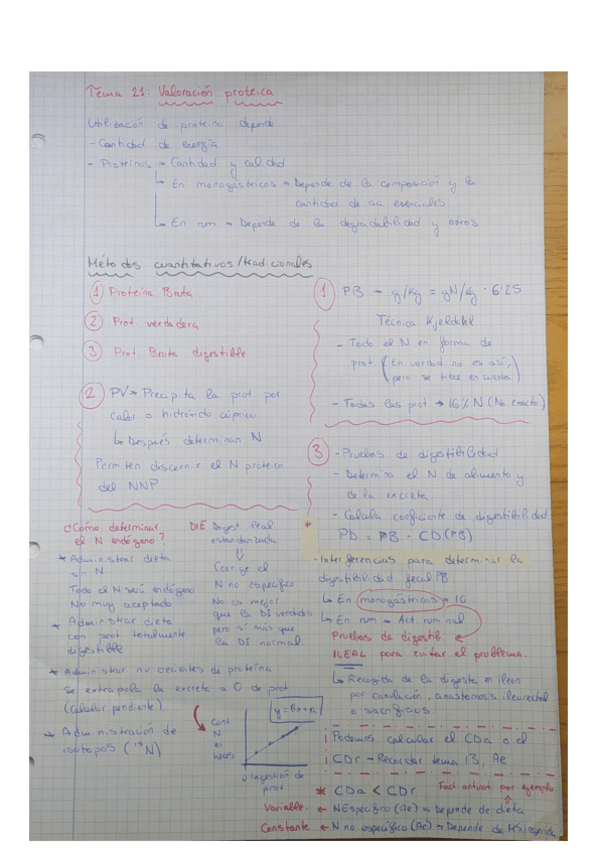 Tema 21: Valoración proteica
Utilización de proteína depende
- Cantidad de energía
- Proteínas → Cantidad y calidad
↳ En monogástricos → Depende de la composición y la
cantidad de aa esenciales
↳ En rum → Depende de la degradabilidad y otros
Métodos cuantitativos/tradicionales
1 Proteína Bruta
2 Prot verdadera
3 Prot. Bruta digestible
1 PB → g/Kg = gN/Kg · 6'25
Técnica Kjeldahl
- Todo el N en forma de
prot (En verdad no es así,
pero se tiene en cuenta)
- Todas las prot → 16% N (No exacto)
2 PV → Precipita la prot por
calor o hidróxido cúprico
↳ Después determinan N
Permiten discernir el N proteico
del NNP
3 - Pruebas de digestibilidad
- Determina el N de alimento y
de la excreta
- Calcula coeficiente de digestibilidad
* PD = PB · CD(PB)
- Interferencias para determinar la
digestibilidad fecal PB
↳ En monogástricos → IG
↳ En rum → Act. ruminal
Pruebas de digestib.
ILEAL para evitar el problema.
↳ Recogida de la digesta en íleon
por canulación, anastomosis ileorectal
o sacrificios
¿Cómo determinar
el N endógeno?
* Administrar dieta
sin N
Todo el N será endógeno
No muy aceptado
* Administrar dieta
con prot totalmente
digestible
DIE Digest. ileal
estandarizada
⇓
Corrige el
N no específico
No es mejor
que la DI verdadera
pero sí más que
la DI normal
* Administrar niv crecientes de proteína
Se extrapola la excreta a 0 de prot
(Calcular pendiente)
* Administración de
isótopos (¹⁵N)
Cant
N
en
heces
y = bx + a
Ingestión de
prot
Podemos calcular el CDa o el
CDr → Recordar tema 13, Ae
* CDa < CDr Fact. antinut. por ejemplo
Variable. ← N Específico (Ae) → Depende de dieta
Constante ← N no específico (Ae) → Depende de MS ingerida